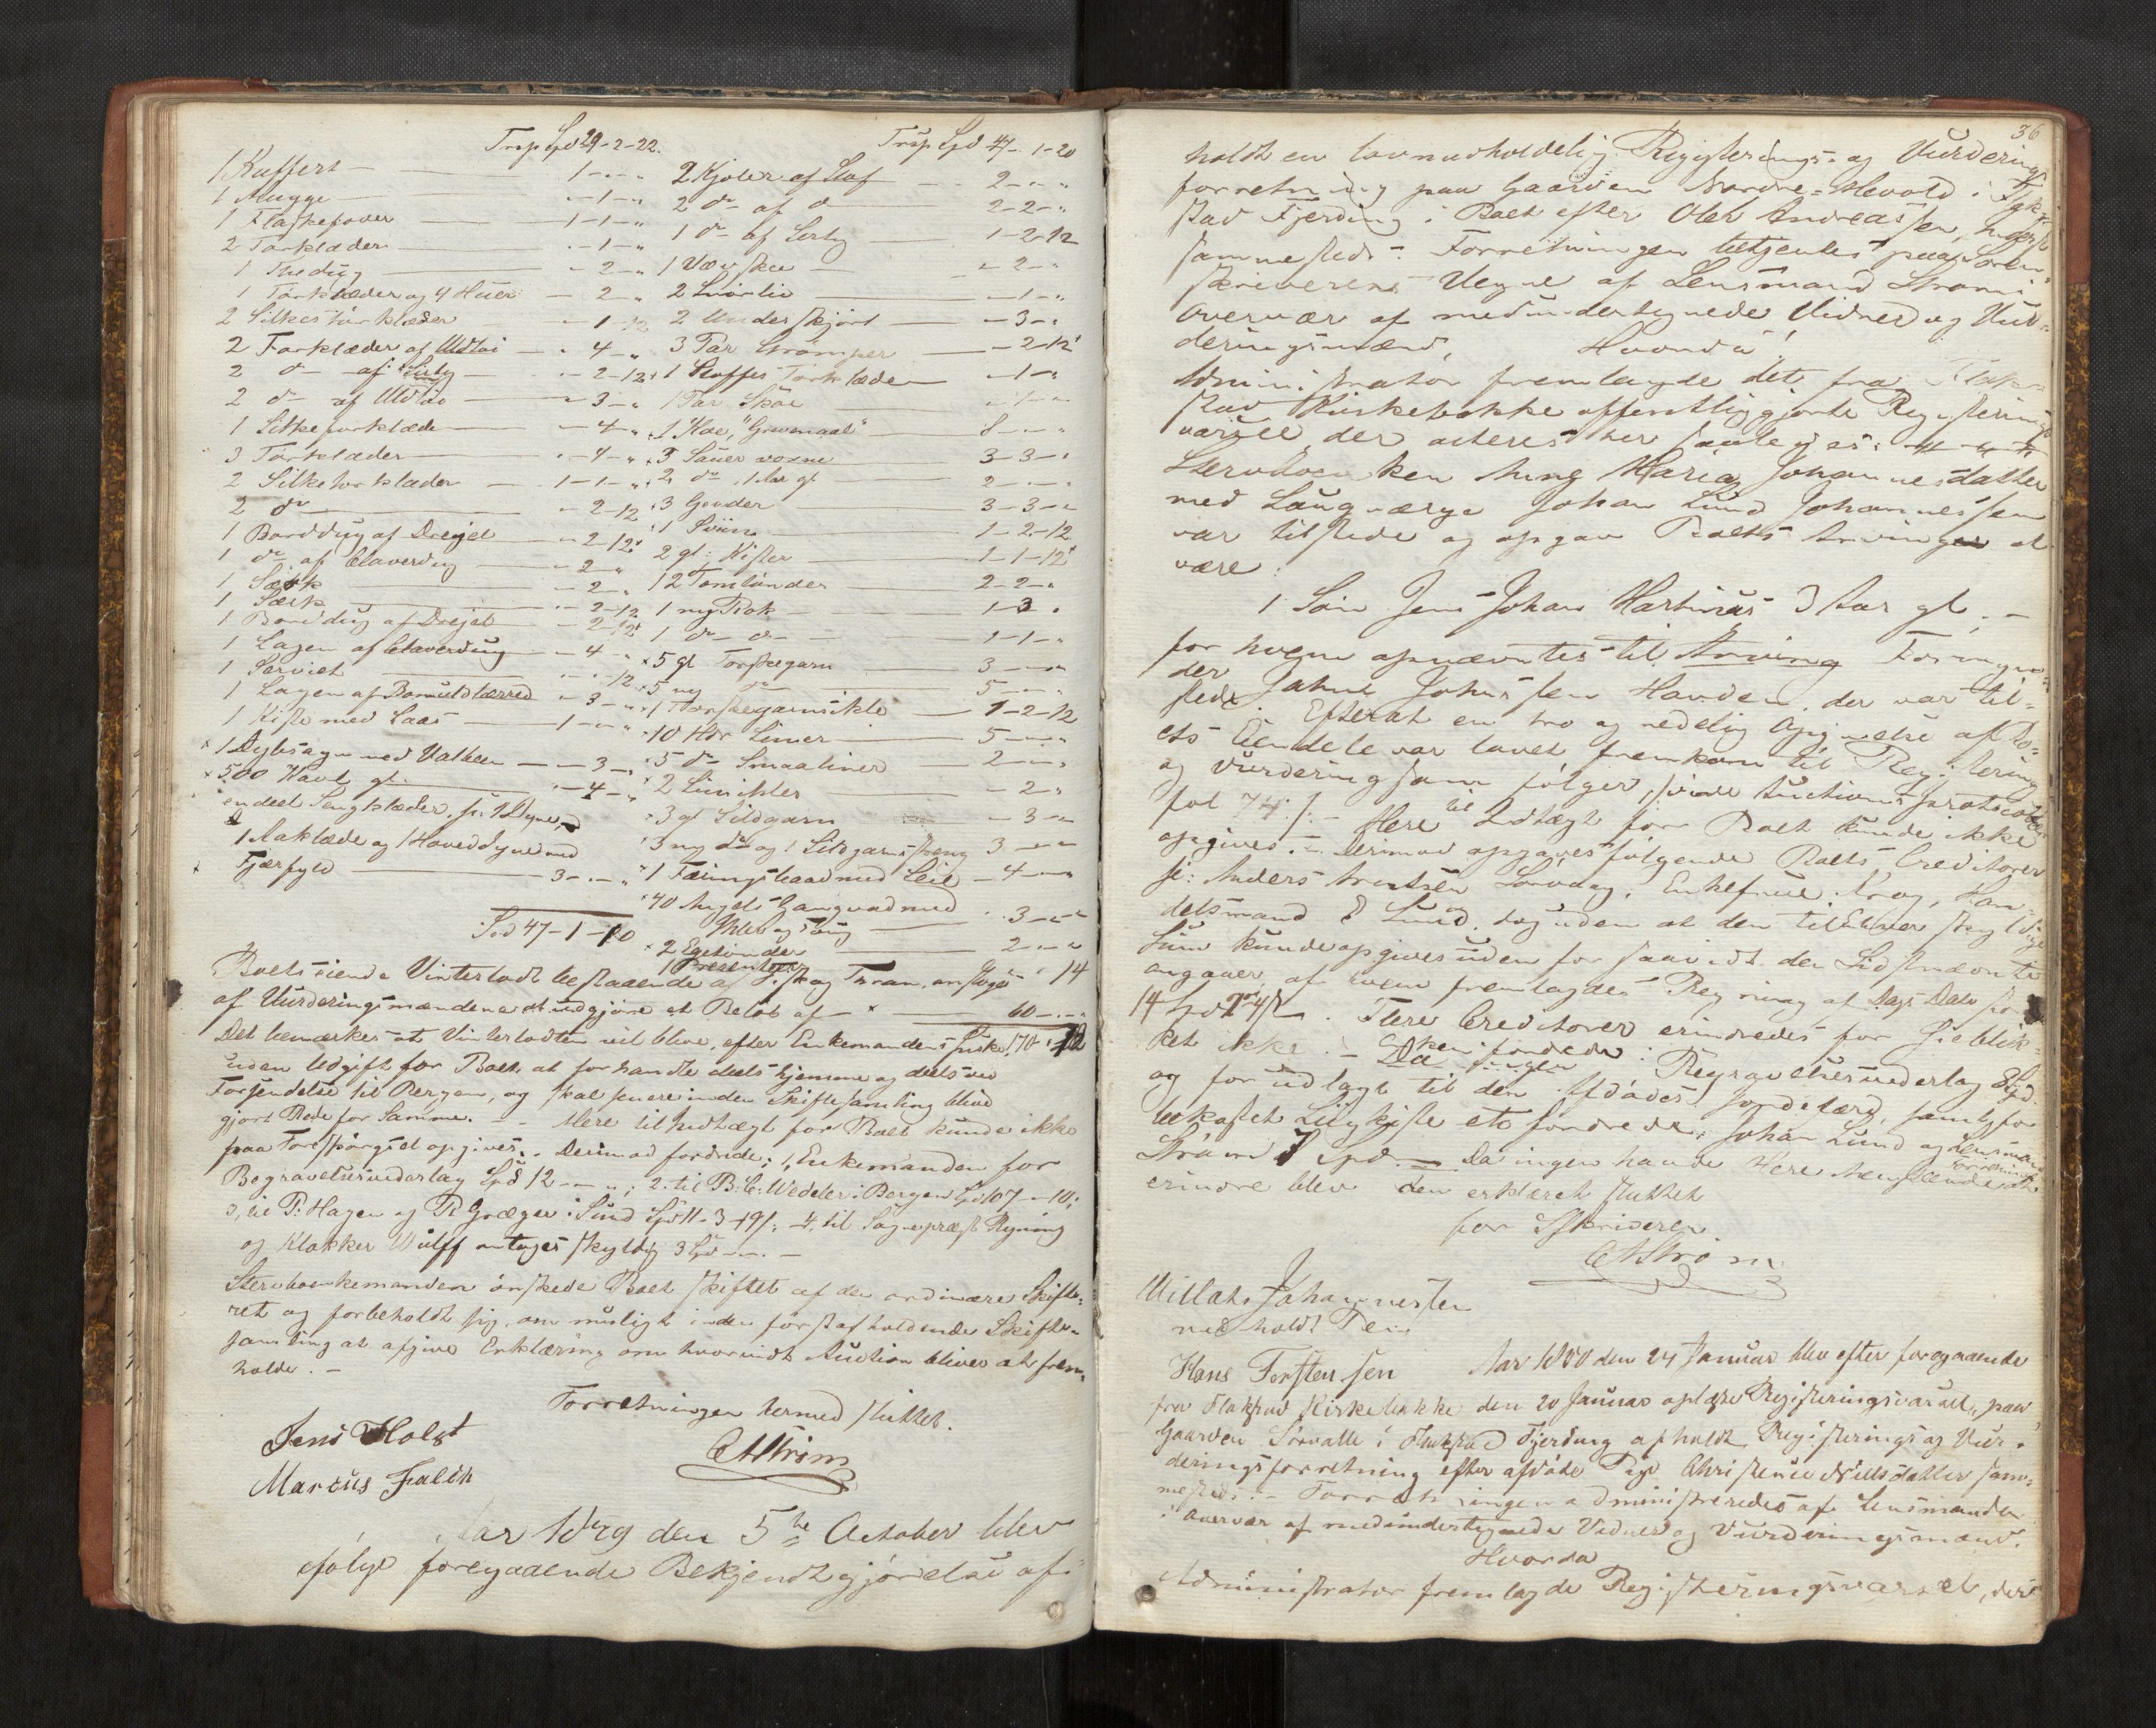 Trsp Spd 29-2-22.
1 Kuffert — 1-„-„
1 Mugge — „-1-„
1 Flaskefoder — 1-1-„
2 Tørklæder — „-1-„
1 Thedug — „-2-„
1 Tørklæder og 4 Huer — 2-„
2 Silketørklæder — „-1-12
2 Forklæder af Uldtøi — „ 4-„
2 do af Sirts — „-2-12
2 do af Uldtøi — „-3-„
1 Silkeforklæde — „-4-„
3 Tørklæder — „-4-„
2 Silketørklæder — 1-1-„
2 do — „-2-12
1 Borddug af Dreijel — „-2-12
1 do af Claverdug — „-2-„
1 Særk — „-2-„
1 Særk — „-2-12
1 Borddug af Drejel — „-2-12
1 Lagen af Claverdug — 4-„
1 Serviet — „-„-12
1 Lagen af Bomuldlærred — „-3-„
1 Kiste med Laas — 1-„-„
1 Dybsagn med Vabeen — „-3-„
500 Kavl gl. — „-4-„
en deel Sengklæder, s: 1 Dyne,
1 Aaklæde og 1 Hoveddyne med
Fjærfyld — 3-„-„
Spd 47-1-20
Trsp Spd 47-1-20
2 Kjoler af Stof — 2-„-„
2 do af do — 2-2-„
1 do af Sirts — 1-2-12
1 Væv skee — „-2-„
2 Snørliv — „-1-„
2 Underskjørt — „-3-„
3 Par Strømper — „-2-12
1 Stoffes Tørklæde — „-1-„
1 Par Skoe — „-1-„
1 Koe, "Gravenaal" — 8-„-„
3 Sauer voxne — 3-3-„
2 do 1 Aar gl — 2-„-„
3 Gjeder — 3-3-„
1 Sviin — 1-2-12
2 gl: Kister — 1-1-12
12 Tomtønder — 2-2-„
1 ny Rok — 1-3-„
1 do do — 1-1-„
5 gl Torskegarn — 3-„-„
5 ny do — 5-„-„
1 Torskegarnsikle — 1-2-12
10 Hdr Liner — 5-„-„
5 do Smaaliner — 2-„-„
2 Liinikler — „-2-„
3 gl Sildgarn — „-3-„
3 ny do og 1 Sildgarnsstreng 3-„-„
1 Færingsbaad med Seil — 4-„-„
40 Angels Gangvad med
Ihler og Toug — 3-„-„
2 Egetønder — 2-„-„
1 Presenter — 14
Boets eiende Vinterlodt bestaaende af Fisk og Tran, ansloges
af Vurderingsmændene at udgjøre et Beløb af — 60-„-„
Det bemærkes at Vinterlodten vil blive, efter Enkemandens Ønske, 170
uden Udgift for Boet, at forhandle deels hjemme og deels ved
Forsendelse til Bergen, og skal senere inden Skiftesamling blive
gjort Rede for Samme. — Mere til Indtægt for Boet kunde ikke
paa Forespørgsel opgives. Derimod fordrede: 1, Enkemanden for
Begravelsesvederlag Spd 12-„-„; 2. til B: C: Wedeler i Bergen Spd 107-„-10;
3, til P: Hagen og R Greger i Sund Spd 11-3-19/; 4. til Sognepræst Rynning
og Klokker Wulff antages skyldig 3 Spd-„-„ —
Stervboenkemanden ønskede Boet skiftet af den ordinære Skifte-
ret og forbeholdt sig, om muligt inden først afholdende Skifte-
samling at afgive Erklæring om hvorvidt Auction bliver at frem-
holde. —
Forretningen hermed sluttet.
Jens Holst
Marcus Falch
CAStrøm
Aar 1849 den 5te October blev
ifølge foregaaende Bekjendtgjørelse af-
36
holdt en lovmedholdelig Registerings- og Vurderings
forretning paa Gaarden Nordre-Nevold i Flak-
stad Fjerding i Boet efter Olek Andreassen,
sammesteds. Forretningen betjentes paa Soren-
skriverens Vegne af Lensmand Strøm i
Overvær af medundertegnede Vidner og Vur-
deringsmænd, Hvorda
Administrator fremlagde det fra Flak-
stad Kirkebakke offentliggjorte Registerings
varsel, der acteres her saaledes:
Stervboenken Anne Maria Johannesdatter
med Laugværge Johan Lund Johannessen
var tilstede og opgav Boets Arvinger at
være:
1 Søn Jens Johan Hartvius 3 Aar gl. —
for hvem opnævntes til Arving Formyn-
der Johns Johnssen Hauden, der var til-
stede. Efterat en tro og redelig Opgivelse af Bo-
ets Eiendele var lovet, fremkom til Registering
og Vurdering som følger, vide Auctionsprotocollen
fol 74. /. — Mere til Indtægt for Boet kunde ikke
opgives. — Derimod opgaves følgende Boets Creditorer
s: Anders Arntsen Sørvaag, Enkefrue Krog, Han-
delsmand E Lund, dog uden at den til Enhver skyldige
Sum kunde opgives uden for saavidt den Sidstnævnte
angaaer, af hvem fremlagdes Regning af Dags Dato stor
14 Spd 2 . Flere Creditorer erindredes for Øieblik-
ket ikke. — Enken fordrede: Begravelsesvederlag 8 Spd.
og for udlagt til den Afdødes Jordefærd, samt for
bekostet Liigkiste etc fordrede, Johan Lund og Lensmand
Strøm 7 Spd. — Da ingen havde Mere Henseende at
erindre blev den erklæret sluttet Forretning
for SSkriveren
CAStrøm
Willats Johannessen
med holdt Pen
Hans Torstensen
Aar 1850 den 24 Januar blev efter foregaaende
fra Flakstad Kirkebakke den 20 Januar oplæste Registeringsvarsel, paa
Gaarden Sørvalle i Flakstad Fjerding afholdt Registerings og Vur-
deringsforretning efter afdøde Pige Christense Nilsdatter sam-
mesteds. — Forretningen administreredes af Lensmanden
i Overvær af medundertegnede Vidner og Vurderingsmænd.
Hvorda
Administrator fremlagde Registeringsvarsel, der